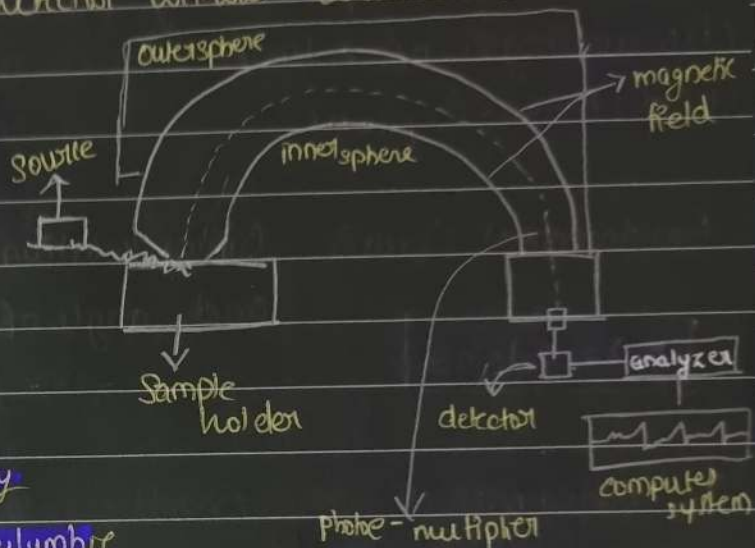 outersphere
magnetic
field
Source
innersphere
Sample
holder
detector
analyzer
computer
system
photo-multiplier